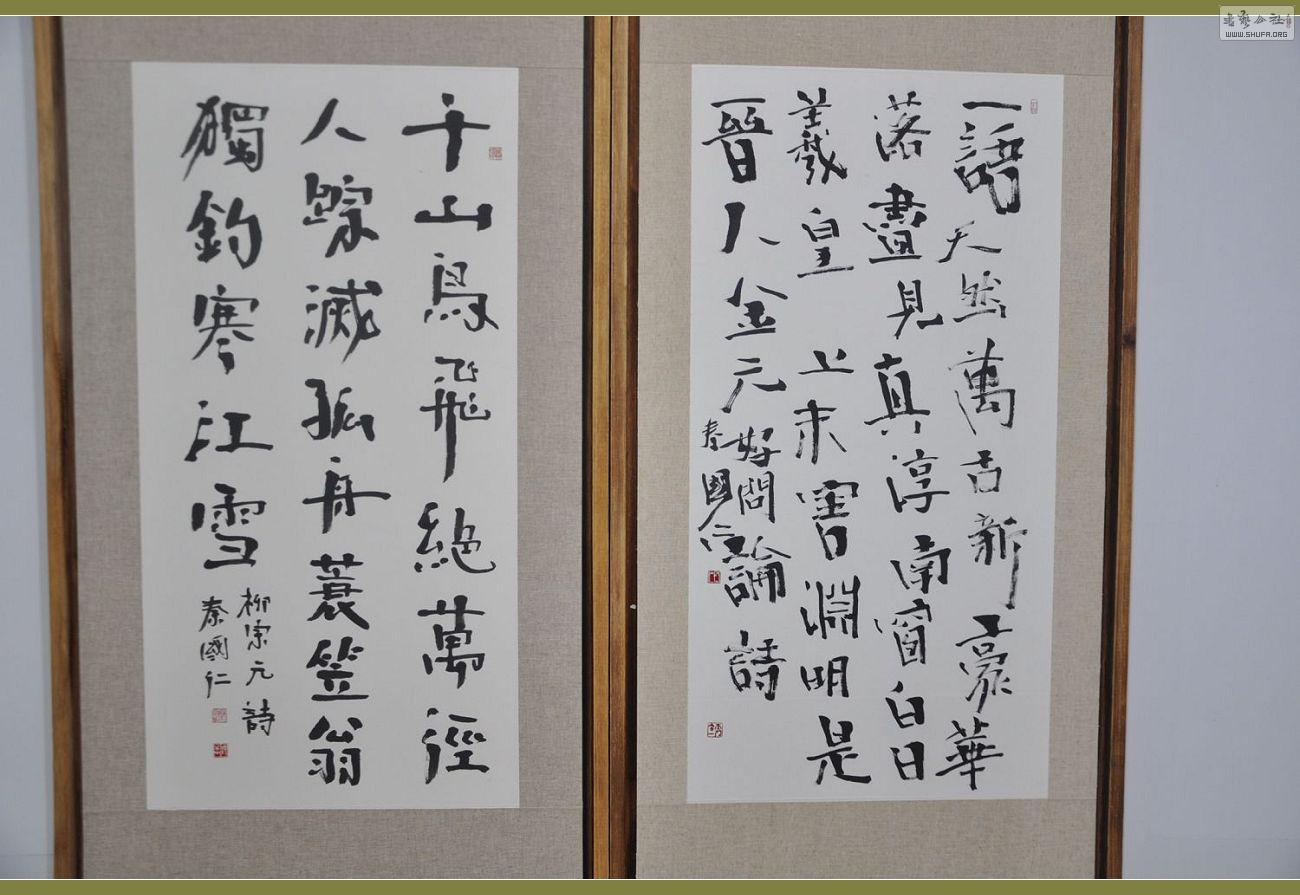 一語天然萬古新豪華
落盡見真淳南窗白日
羲皇上未害淵明是
晉人金元好問論詩
秦國仁
千山鳥飛絕萬徑
人蹤滅孤舟蓑笠翁
獨釣寒江雪
柳宗元詩
秦國仁
WWW.SHUFA.ORG